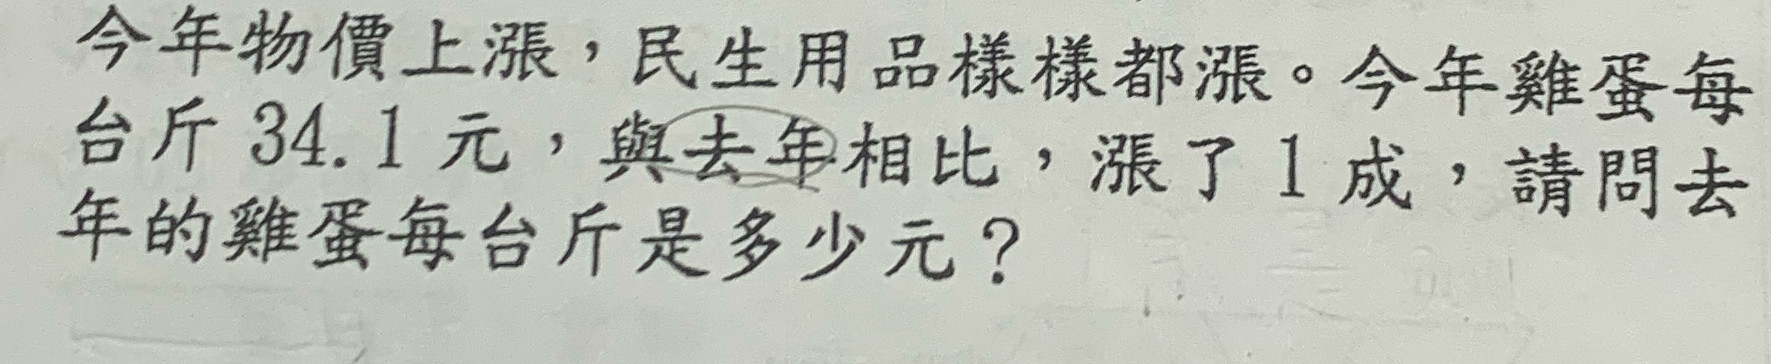 今年物價上漲，民生用品樣樣都漲。今年雞蛋每
台斤 34.1 元，與去年相比，漲了 1 成，請問去
年的雞蛋每台斤是多少元？